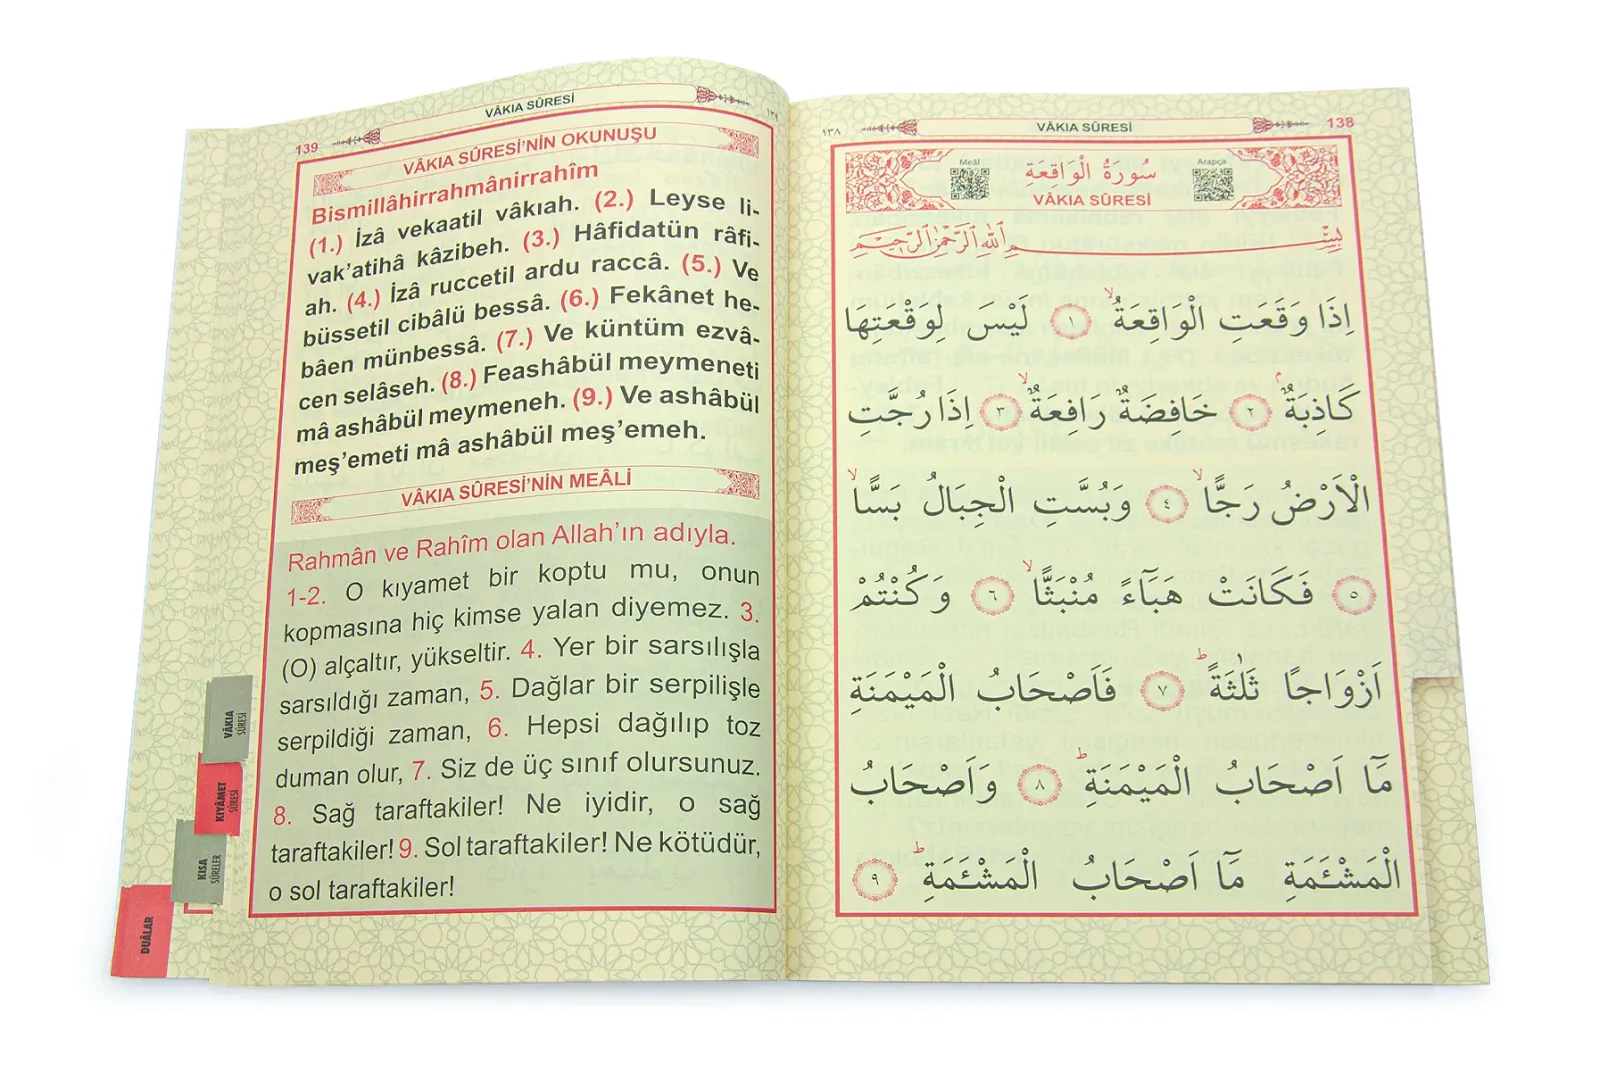 139
VÂKIA SÛRESİ
١٣٩
VÂKIA SÛRESİ’NİN OKUNUŞU
Bismillâhirrahmânirrahîm
(1.) İzâ vekaatil vâkıah. (2.) Leyse li-
vak’atihâ kâzibeh. (3.) Hâfidatün râfi-
ah. (4.) İzâ ruccetil ardu raccâ. (5.) Ve
büssetil cibâlü bessâ. (6.) Fekânet he-
bâen münbessâ. (7.) Ve küntüm ezvâ-
cen selâseh. (8.) Feashâbül meymeneti
mâ ashâbül meymeneh. (9.) Ve ashâbül
meş’emeti mâ ashâbül meş’emeh.
VÂKIA SÛRESİ’NİN MEÂLİ
Rahmân ve Rahîm olan Allah’ın adıyla.
1-2. O kıyamet bir koptu mu, onun
kopmasına hiç kimse yalan diyemez. 3.
(O) alçaltır, yükseltir. 4. Yer bir sarsılışla
sarsıldığı zaman, 5. Dağlar bir serpilişle
serpildiği zaman, 6. Hepsi dağılıp toz
duman olur, 7. Siz de üç sınıf olursunuz.
8. Sağ taraftakiler! Ne iyidir, o sağ
taraftakiler! 9. Sol taraftakiler! Ne kötüdür,
o sol taraftakiler!
VÂKIA
SÛRESİ
KIYÂMET
SÛRESİ
KISA
SÛRELER
DUÂLAR
١٣٨
VÂKIA SÛRESİ
138
Meâl
سُورَةُ الْوَاقِعَةِ
Arapça
VÂKIA SÛRESİ
بِسْمِ اللّٰهِ الرَّحْمٰنِ الرَّحِيمِ
اِذَا وَقَعَتِ الْوَاقِعَةُۙ ﴿١﴾ لَيْسَ لِوَقْعَتِهَا
كَاذِبَةٌۢ ﴿٢﴾ خَافِضَةٌ رَافِعَةٌۙ ﴿٣﴾ اِذَا رُجَّتِ
الْاَرْضُ رَجًّاۙ ﴿٤﴾ وَبُسَّتِ الْجِبَالُ بَسًّاۙ
﴿٥﴾ فَكَانَتْ هَبَٓاءً مُنْبَثًّاۙ ﴿٦﴾ وَكُنْتُمْ
اَزْوَاجًا ثَلٰثَةًۜ ﴿٧﴾ فَاَصْحَابُ الْمَيْمَنَةِ
مَٓا اَصْحَابُ الْمَيْمَنَةِۜ ﴿٨﴾ وَاَصْحَابُ
الْمَشْـَٔمَةِ مَٓا اَصْحَابُ الْمَشْـَٔمَةِۜ ﴿٩﴾